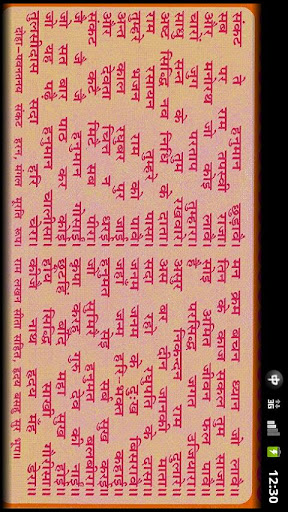 संकट ते हनुमान छुडावै। मन क्रम बचन ध्यान जो लावै॥
सब पर राम तपस्वी राजा। तिन के काज सकल तुम साजा॥
और मनोरथ जो कोई लावै। सोइ अमित जीवन फल पावै॥
चारों जुग परताप तुम्हारा। है परसिद्ध जगत उजियारा॥
साधु सन्त के तुम रखवारे। असुर निकन्दन राम दुलारे॥
अष्ट सिद्धि नव निधि के दाता। अस बर दीन जानकी माता॥
राम रसायन तुम्हरे पासा। सदा रहो रघुपति के दासा॥
तुम्हरे भजन राम को पावै। जनम जनम के दुःख बिसरावै॥
अन्त काल रघुबर पुर जाई। जहाँ जन्म हरि-भक्त कहाई॥
और देवता चित्त न धरई। हनुमत सेइ सर्व सुख करई॥
संकट कटै मिटै सब पीरा। जो सुमिरै हनुमत बलबीरा॥
जै जै जै हनुमान गोसाईं। कृपा करहु गुरु देव की नाईं॥
जो सत बार पाठ कर कोई। छूटहि बंदि महा सुख होई॥
जो यह पढै हनुमान चालीसा। होय सिद्धि साखी गौरीसा॥
तुलसीदास सदा हरि चेरा। कीजै नाथ हृदय मंह डेरा॥
दोहा-पवनतनय संकट हरन, मंगल मूर्ति रूप। राम लखन सीता सहित, हृदय बसहु सुर भूप॥
3G 12:30